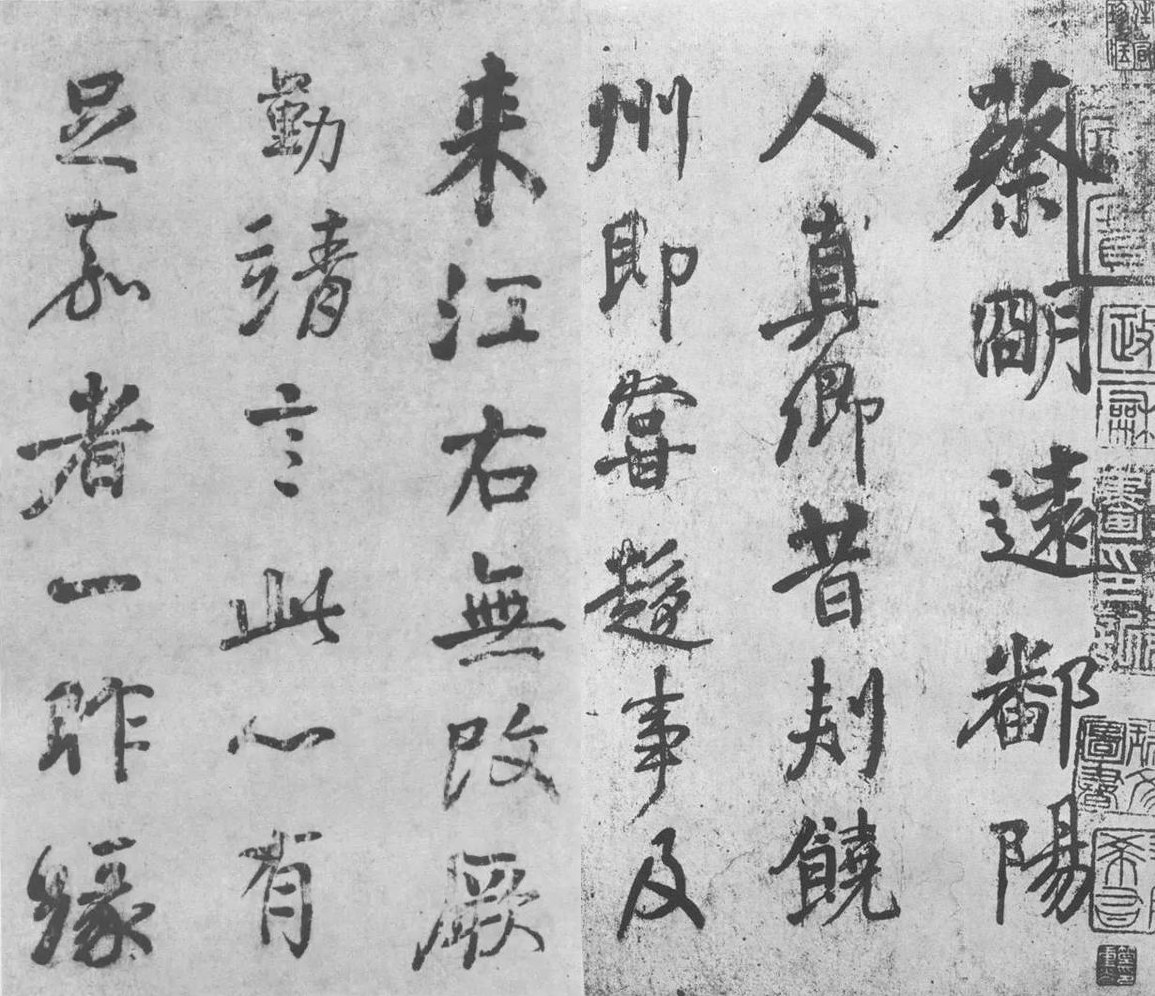 蔡朙遠鄱陽
人真卿昔刾饒
州即甞趍事及
来江右無改厥
勤靖言此心有
足嘉者一昨緣